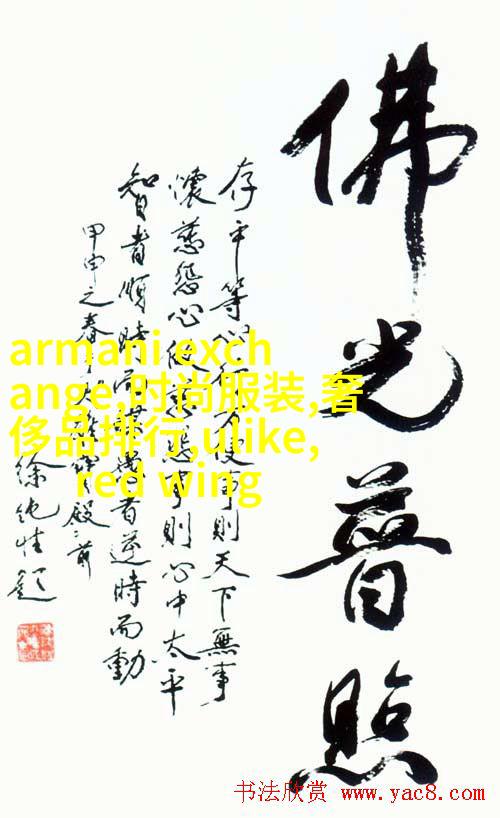 佛光普照
存平等心行方便事則天下無事
懷慈悲心做慈悲事則心中太平
智者順時而謀愚者逆時而動
甲申之春
徐純性題
armani exch
ange,时尚服装,奢
侈品排行,ulike,
red wing
书法欣赏 www.yac8.com